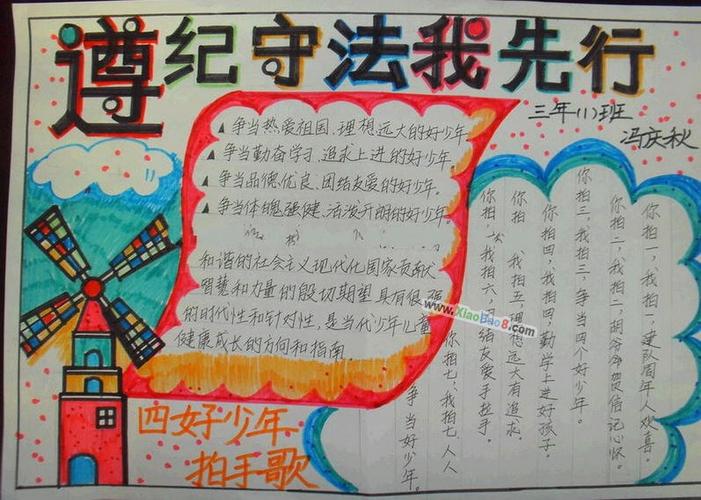 遵纪守法我先行
三年(1)班
冯庆秋
▲争当热爱祖国、理想远大的好少年
▲争当勤奋学习、追求上进的好少年。
▲争当品德优良、团结友爱的好少年。
▲争当体魄强健、活泼开朗的好少年。
和谐的社会主义现代化国家贡献
智慧和力量的殷切期望具有很强
的时代性和针对性,是当代少年儿童
健康成长的方向和指南
四好少年
拍手歌
你拍一,我拍一,建队周年人欢喜。
你拍二,我拍二,胡爷爷贺信记心怀。
你拍三,我拍三,争当四个好少年。
你拍四,我拍四,勤学上进好孩子。
你拍 我拍五,理想远大有追求。
你拍六,我拍六,团结友爱手拉手。
你拍七,我拍七,人人
争当好少年。
www.XiaoBao8.com